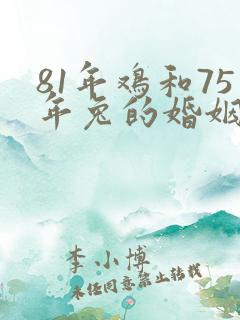 81年鸡和75
年兔的婚姻
李小博
未经同意禁止转载